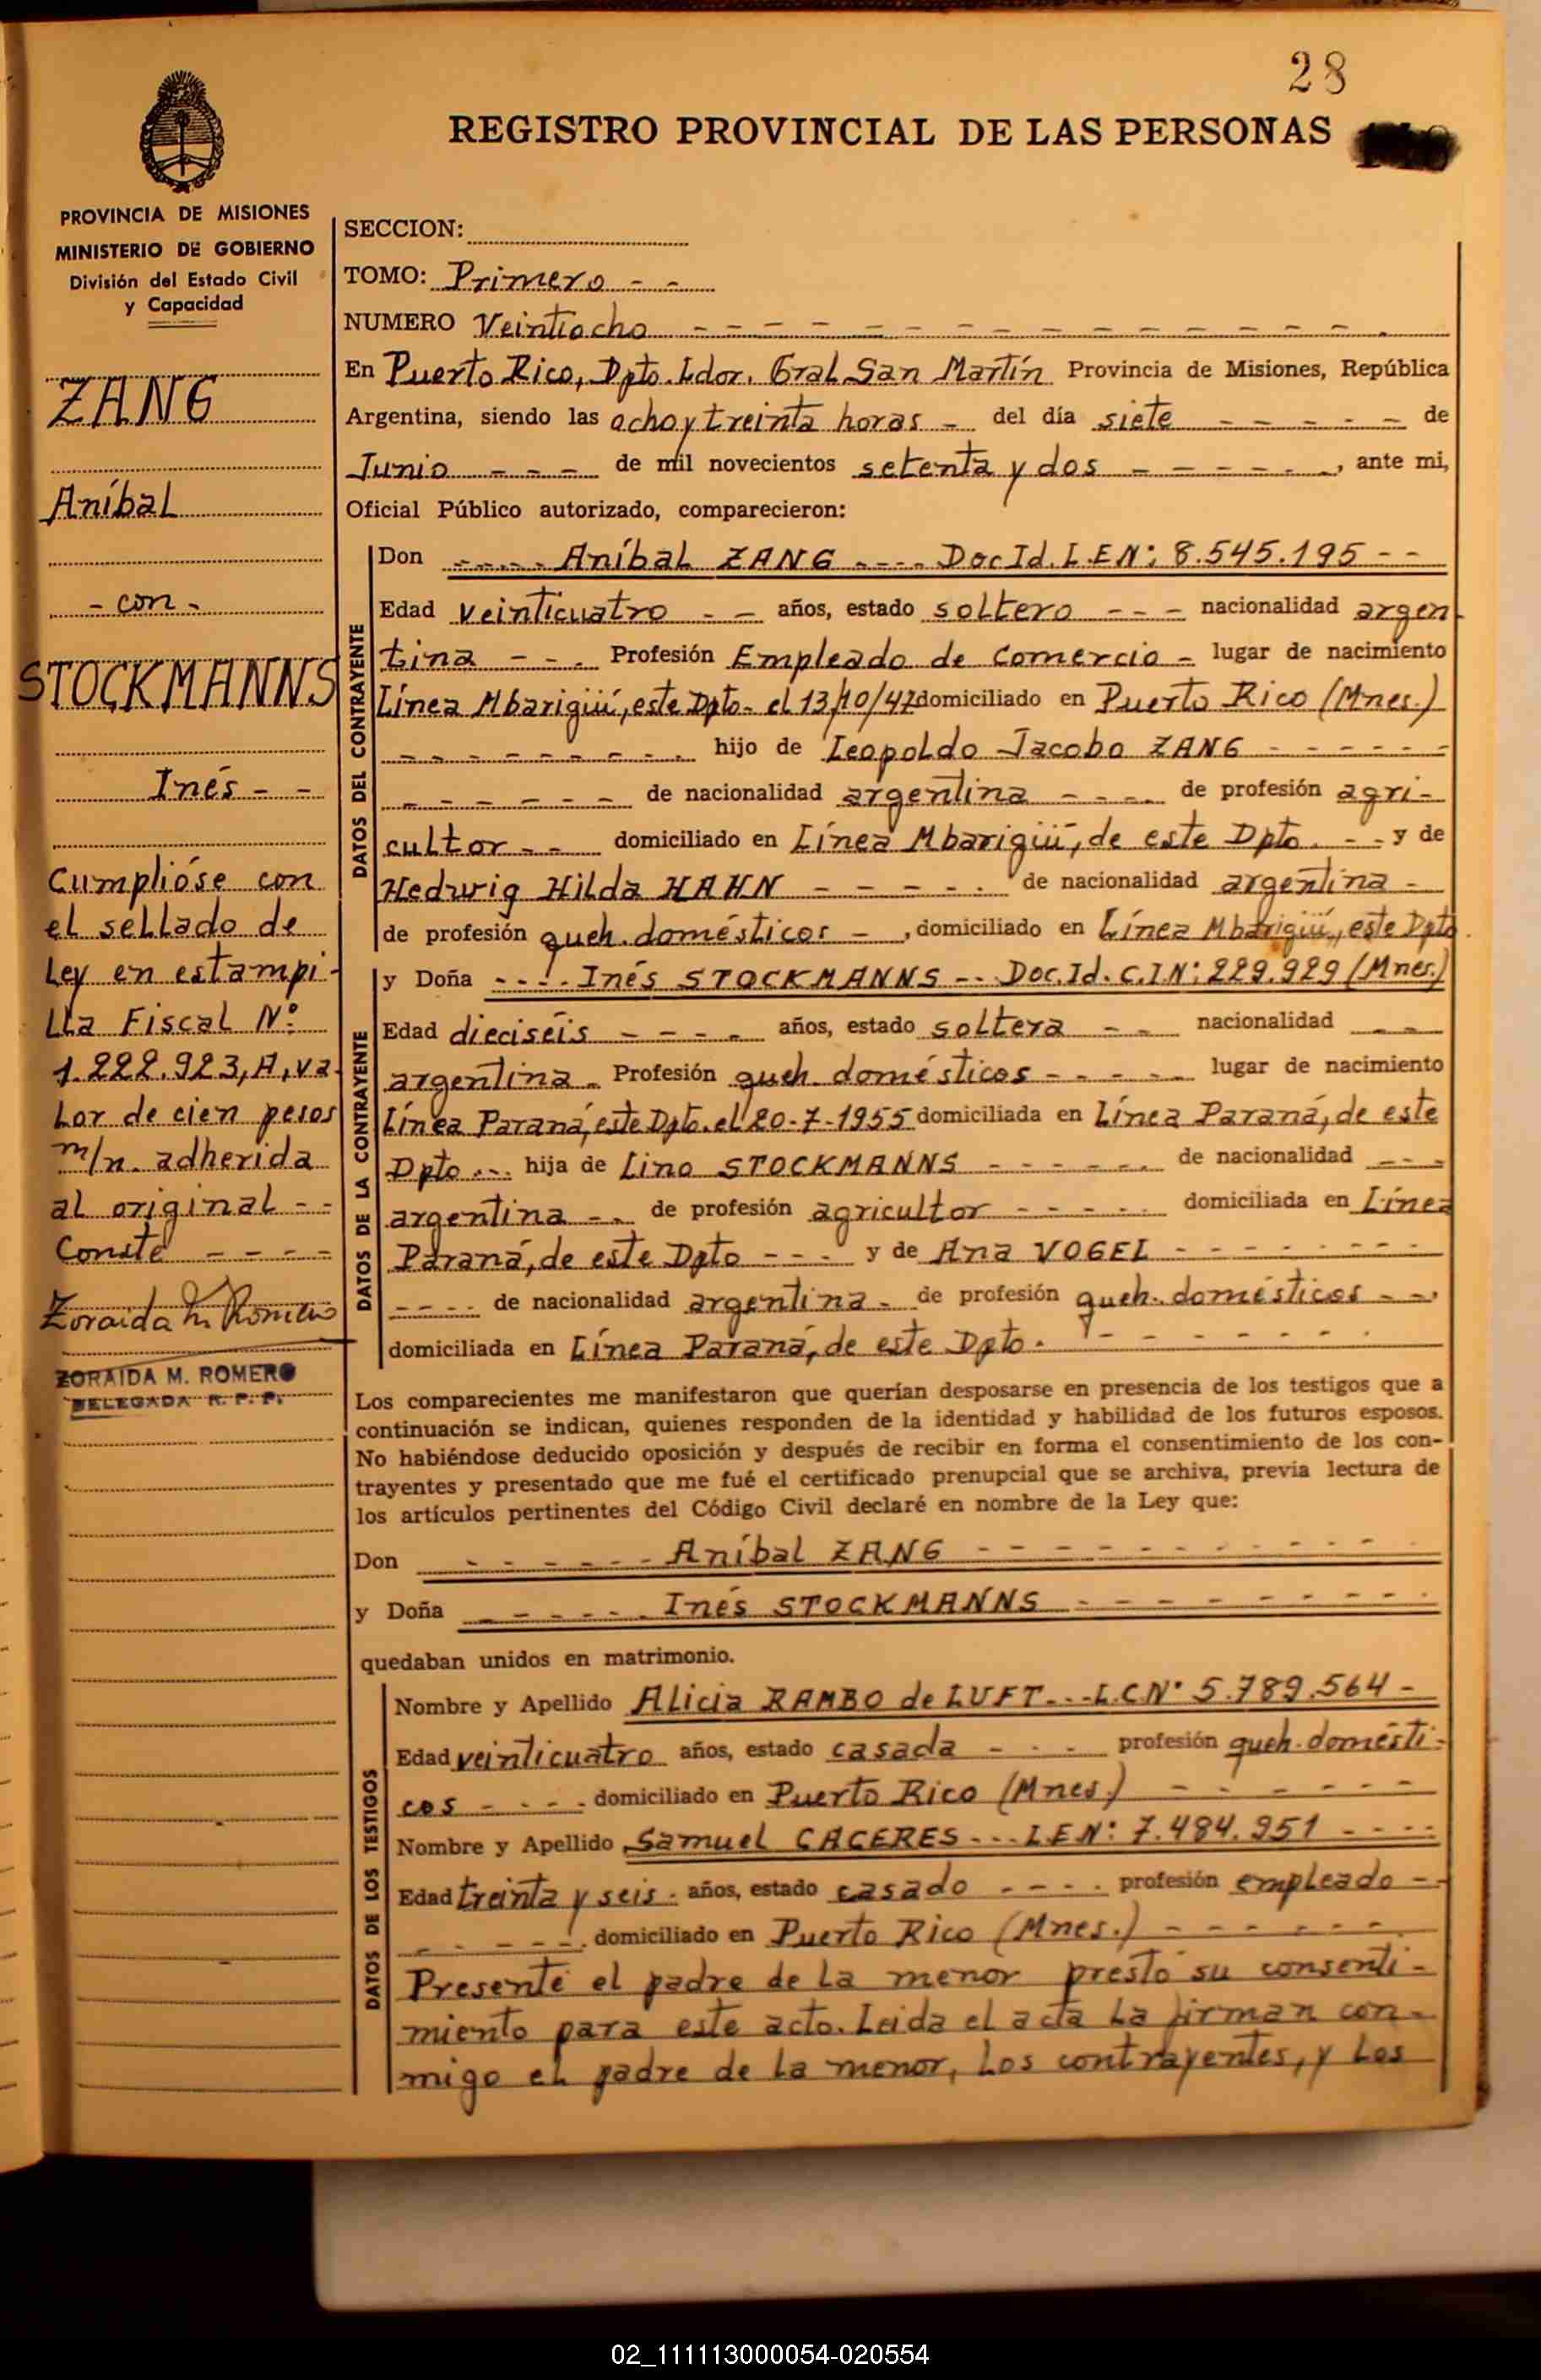 28
REGISTRO PROVINCIAL DE LAS PERSONAS
PROVINCIA DE MISIONES
MINISTERIO DE GOBIERNO
División del Estado Civil
y Capacidad
ZANG
Aníbal
- con -
STOCKMANNS
Inés - -
Cumplióse con
el sellado de
Ley en estampi-
lla Fiscal Nº
1.222.923, A, va-
lor de cien pesos
m/n. adherida
al original - -
Conste - - - -
Zoraida M. Romero
ZORAIDA M. ROMERO
DELEGADA R. P. P.
SECCION:
TOMO: Primero - -
NUMERO Veintiocho - - - - - - - - - - - - - - -
En Puerto Rico, Dpto. Ldor. Gral. San Martín Provincia de Misiones, República
Argentina, siendo las ocho y treinta horas - del día siete - - - - - de
Junio - - - de mil novecientos setenta y dos - - - - - -, ante mi,
Oficial Público autorizado, comparecieron:
DATOS DEL CONTRAYENTE
Don - - - - - Aníbal ZANG - - - - Doc Id. L.E.Nº: 8.545.195 - -
Edad veinticuatro - - años, estado soltero - - - nacionalidad argen-
tina - - . Profesión Empleado de Comercio - lugar de nacimiento
Línea Mbarigüí, este Dpto- el 13/10/47 domiciliado en Puerto Rico (Mnes.)
- - - - - - - - - hijo de Leopoldo Jacobo ZANG - - - - - -
- - - - - - de nacionalidad argentina - - - - de profesión agri-
cultor - - domiciliado en Línea Mbarigüí, de este Dpto. - - y de
Hedwig Hilda HAHN - - - - - - de nacionalidad argentina -
de profesión queh. domésticos - , domiciliado en Línea Mbarigüí, este Dpto.
DATOS DE LA CONTRAYENTE
y Doña - - - - Inés STOCKMANNS - - Doc. Id. C.I.Nº: 229.929 (Mnes.)
Edad dieciséis - - - - años, estado soltera - - nacionalidad - -
argentina - Profesión queh. domésticos - - - - - lugar de nacimiento
Línea Paraná, este Dpto. el 20-7-1955 domiciliada en Línea Paraná, de este
Dpto - - - hija de Lino STOCKMANNS - - - - - - de nacionalidad - - -
argentina - - de profesión agricultor - - - - - domiciliada en Línea
Paraná, de este Dpto - - - - y de Ana VOGEL - - - - - - - -
- - - - de nacionalidad argentina - de profesión queh. domésticos - -,
domiciliada en Línea Paraná, de este Dpto. - - - - - - - -
Los comparecientes me manifestaron que querían desposarse en presencia de los testigos que a
continuación se indican, quienes responden de la identidad y habilidad de los futuros esposos.
No habiéndose deducido oposición y después de recibir en forma el consentimiento de los con-
trayentes y presentado que me fué el certificado prenupcial que se archiva, previa lectura de
los artículos pertinentes del Código Civil declaré en nombre de la Ley que:
Don - - - - - - Aníbal ZANG - - - - - - - - - - -
y Doña - - - - - - Inés STOCKMANNS - - - - - - - - -
quedaban unidos en matrimonio.
DATOS DE LOS TESTIGOS
Nombre y Apellido Alicia RAMBO de LUFT - - - L.C Nº 5.789.564 -
Edad veinticuatro años, estado casada - - - profesión queh. domésti-
cos - - - - domiciliado en Puerto Rico (Mnes.) - - - - - -
Nombre y Apellido Samuel CACERES - - - L.E.Nº: 7.484.951 - - - -
Edad treinta y seis - años, estado casado - - - - profesión empleado - -
- - - - - - domiciliado en Puerto Rico (Mnes.) - - - - - -
Presente el padre de la menor prestó su consenti-
miento para este acto. Leída el acta la firman con-
migo el padre de la menor, los contrayentes, y los
02_111113000054-020554